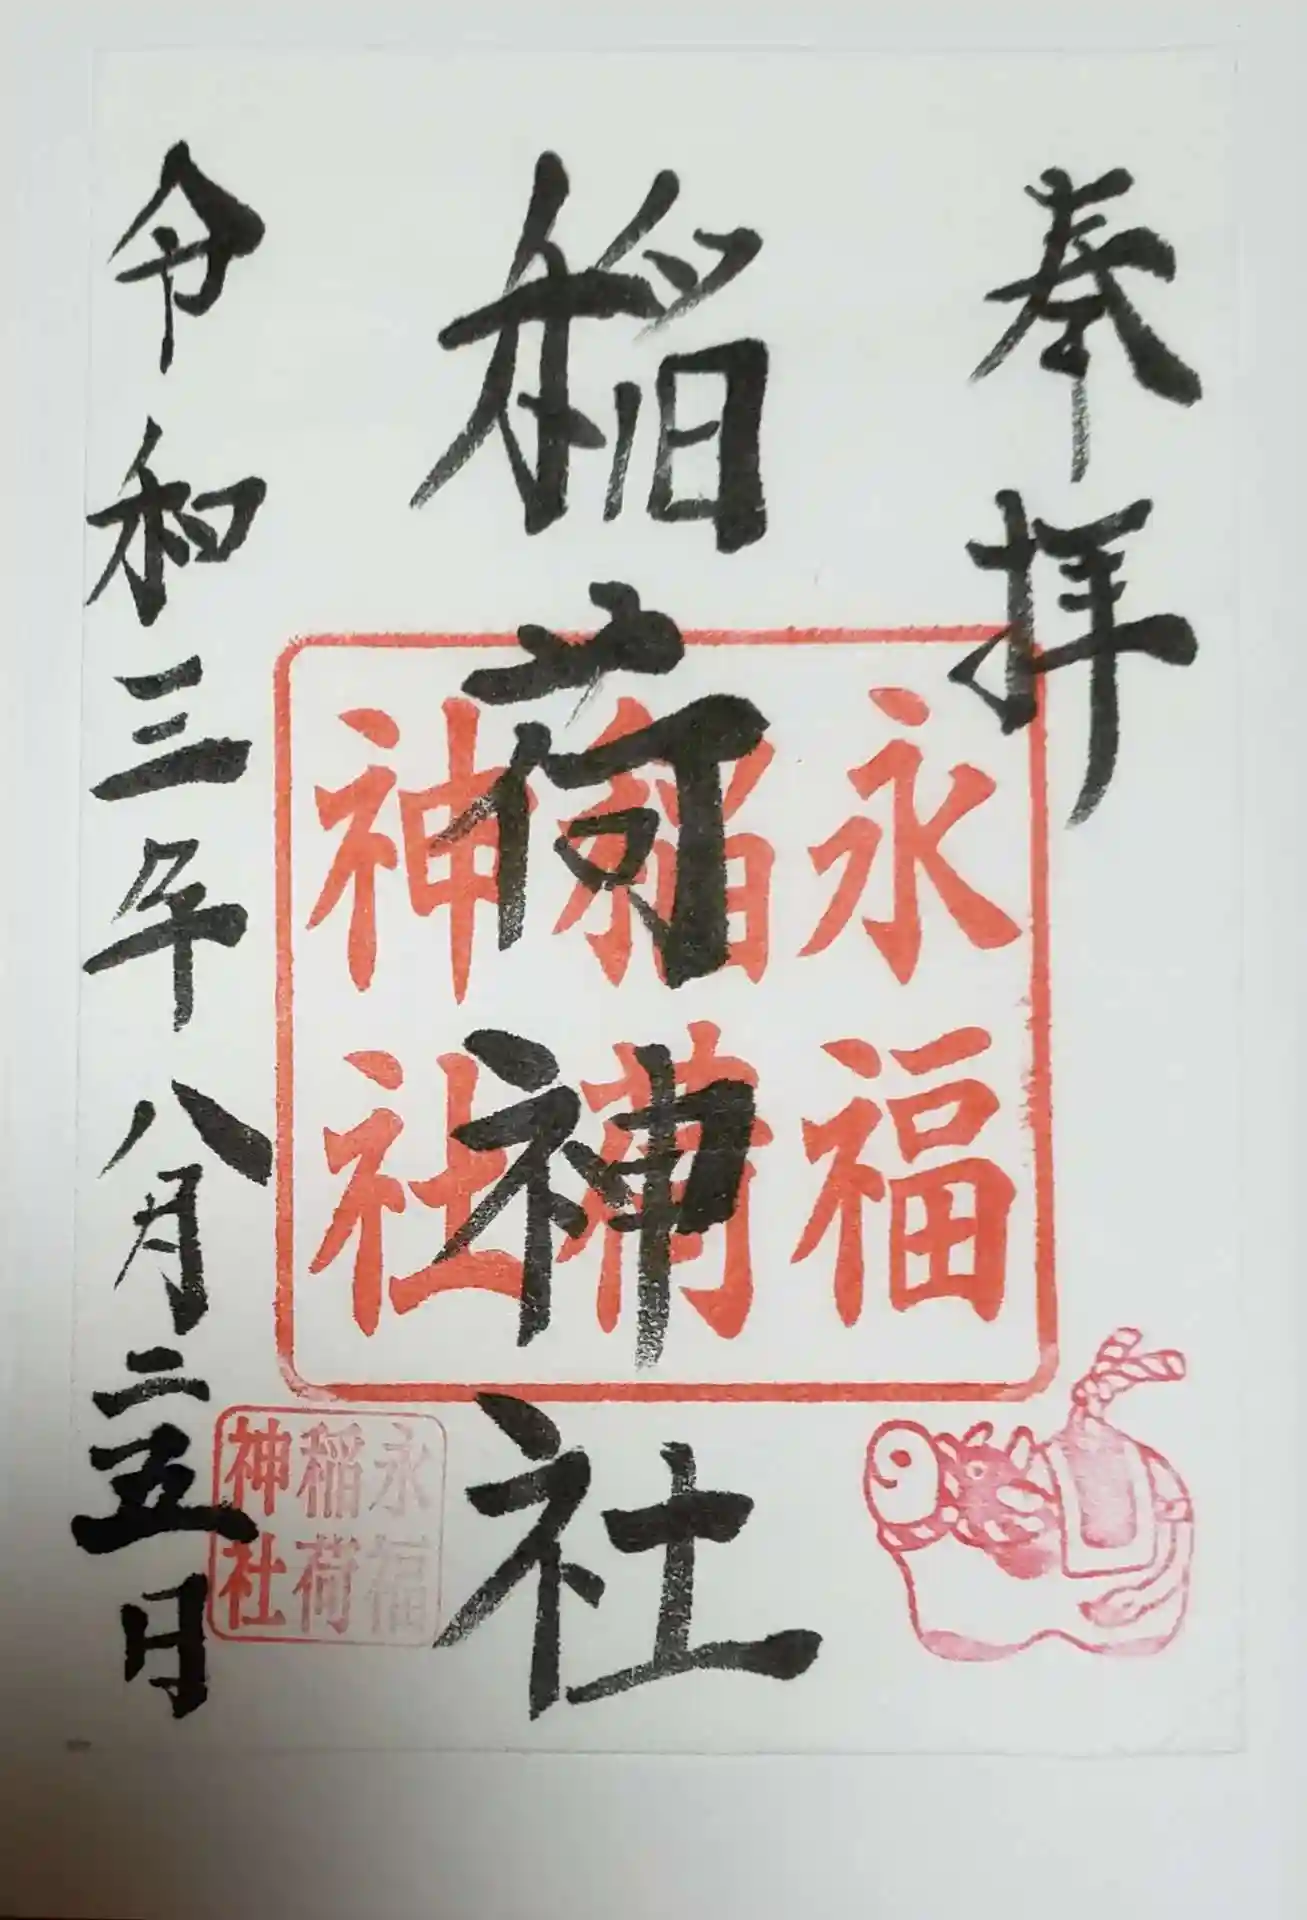 奉拝
稲荷神社
令和三年八月二五日
永福
稲荷
神社
永福
稲荷
神社